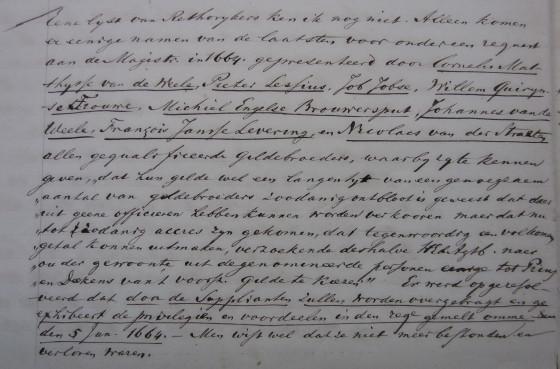 Eene lyst van Rethorykers ken ik nog niet. Alleen komen
er eenige namen van de laatsten voor onder een request
aan de Magistr. in 1664. gepresenteerd door Cornelis Mat-
thysse van de Weele, Pieter Lessius, Job Jobse, Willem Quiryn-
se Trouwe, Michiel Engelse Brouwersput, Johannes van de
Weele, François Jansse Levering, en Nicolaes van der Straeten
allen gequalificeerde Gildebroeders, waarby zy te kennen
geven, "dat hun gilde wel een langen tyt van een genoegsaem
"aantal van gildebroeders zoodanig ontbloot is geweest dat daer
"uit geene officieren hebben kunnen worden verkooren maer dat nu
"tot zoodanig accres zyn gekomen, dat tegenwoordig een volkomen
"getal konnen uitmaken, verzoekende derhalve naer
"ouder gewoonte uit de genomineerde personen eenige tot Prins
"en Dekens van 't voorsz. Gilde te kiezen." Er werd op geresol-
veerd dat door de Supplianten zullen worden overgebragt en ge-
exhibeert de privilegien en voordeelen in den reqe gemelt omme
den 5 Jun. 1664. – Men wist wel dat ze niet meer bestonden en
verloren waren.